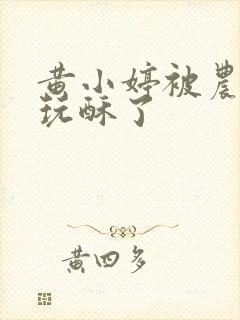 黄小婷被農
玩酥了
黄四多